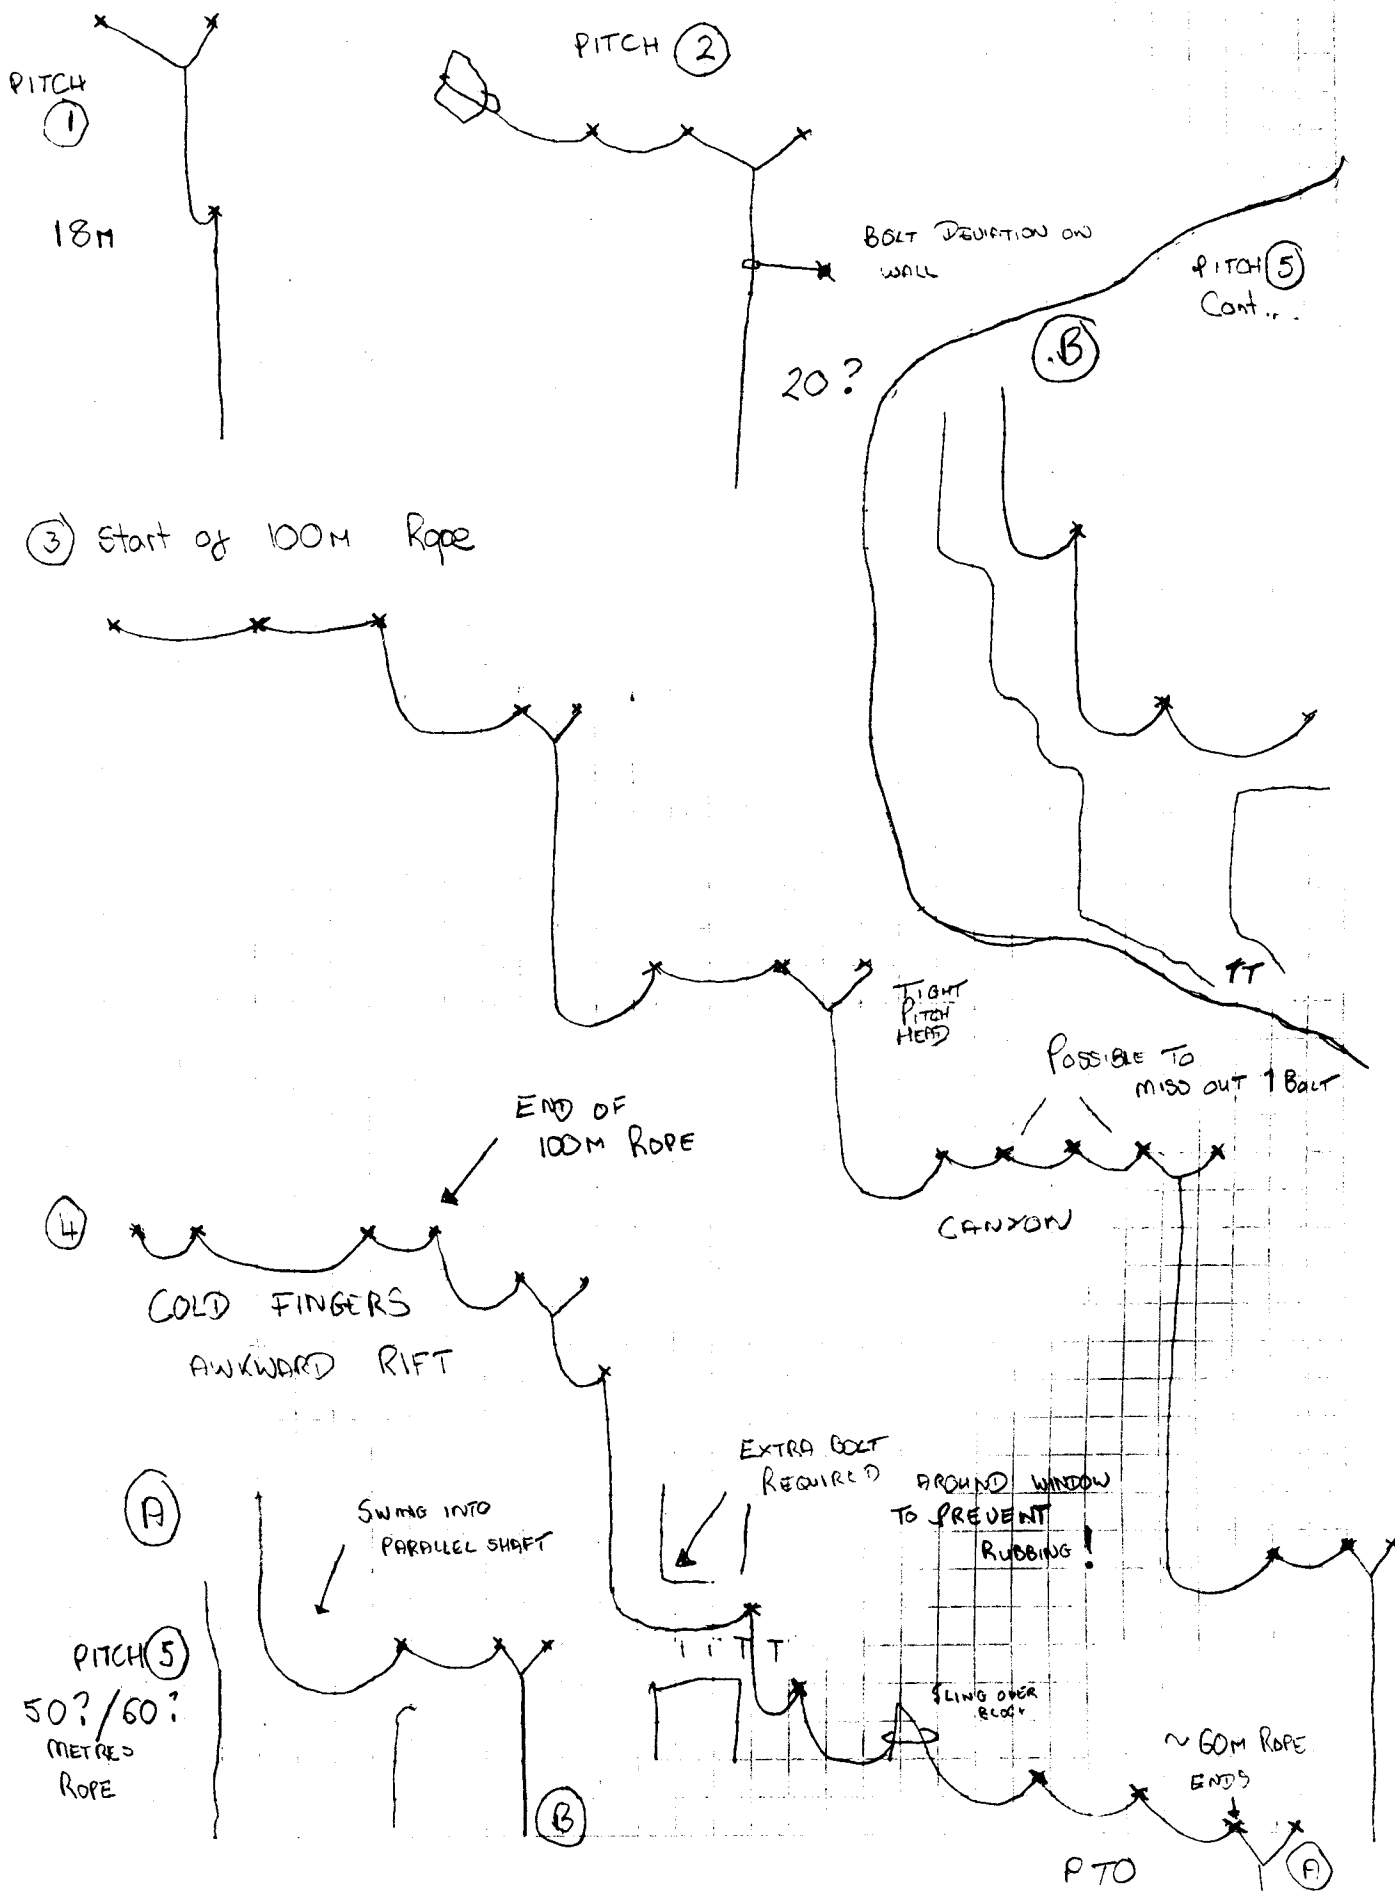 PITCH
1
18M
PITCH 2
BOLT DEVIATION ON
WALL
20?
PITCH 5
Cont...
B
3 Start of 100M Rope
TIGHT
PITCH
HEAD
1T
POSSIBLE TO
MISS OUT 1 BOLT
END OF
100M ROPE
CANYON
4
COLD FINGERS
AWKWARD RIFT
EXTRA BOLT
REQUIRED
AROUND WINDOW
TO PREVENT
RUBBING!
A
SWING INTO
PARALLEL SHAFT
PITCH 5
50?/60?
METRES
ROPE
B
SLING OVER
BLOCK
~60M ROPE
ENDS
PTO
A